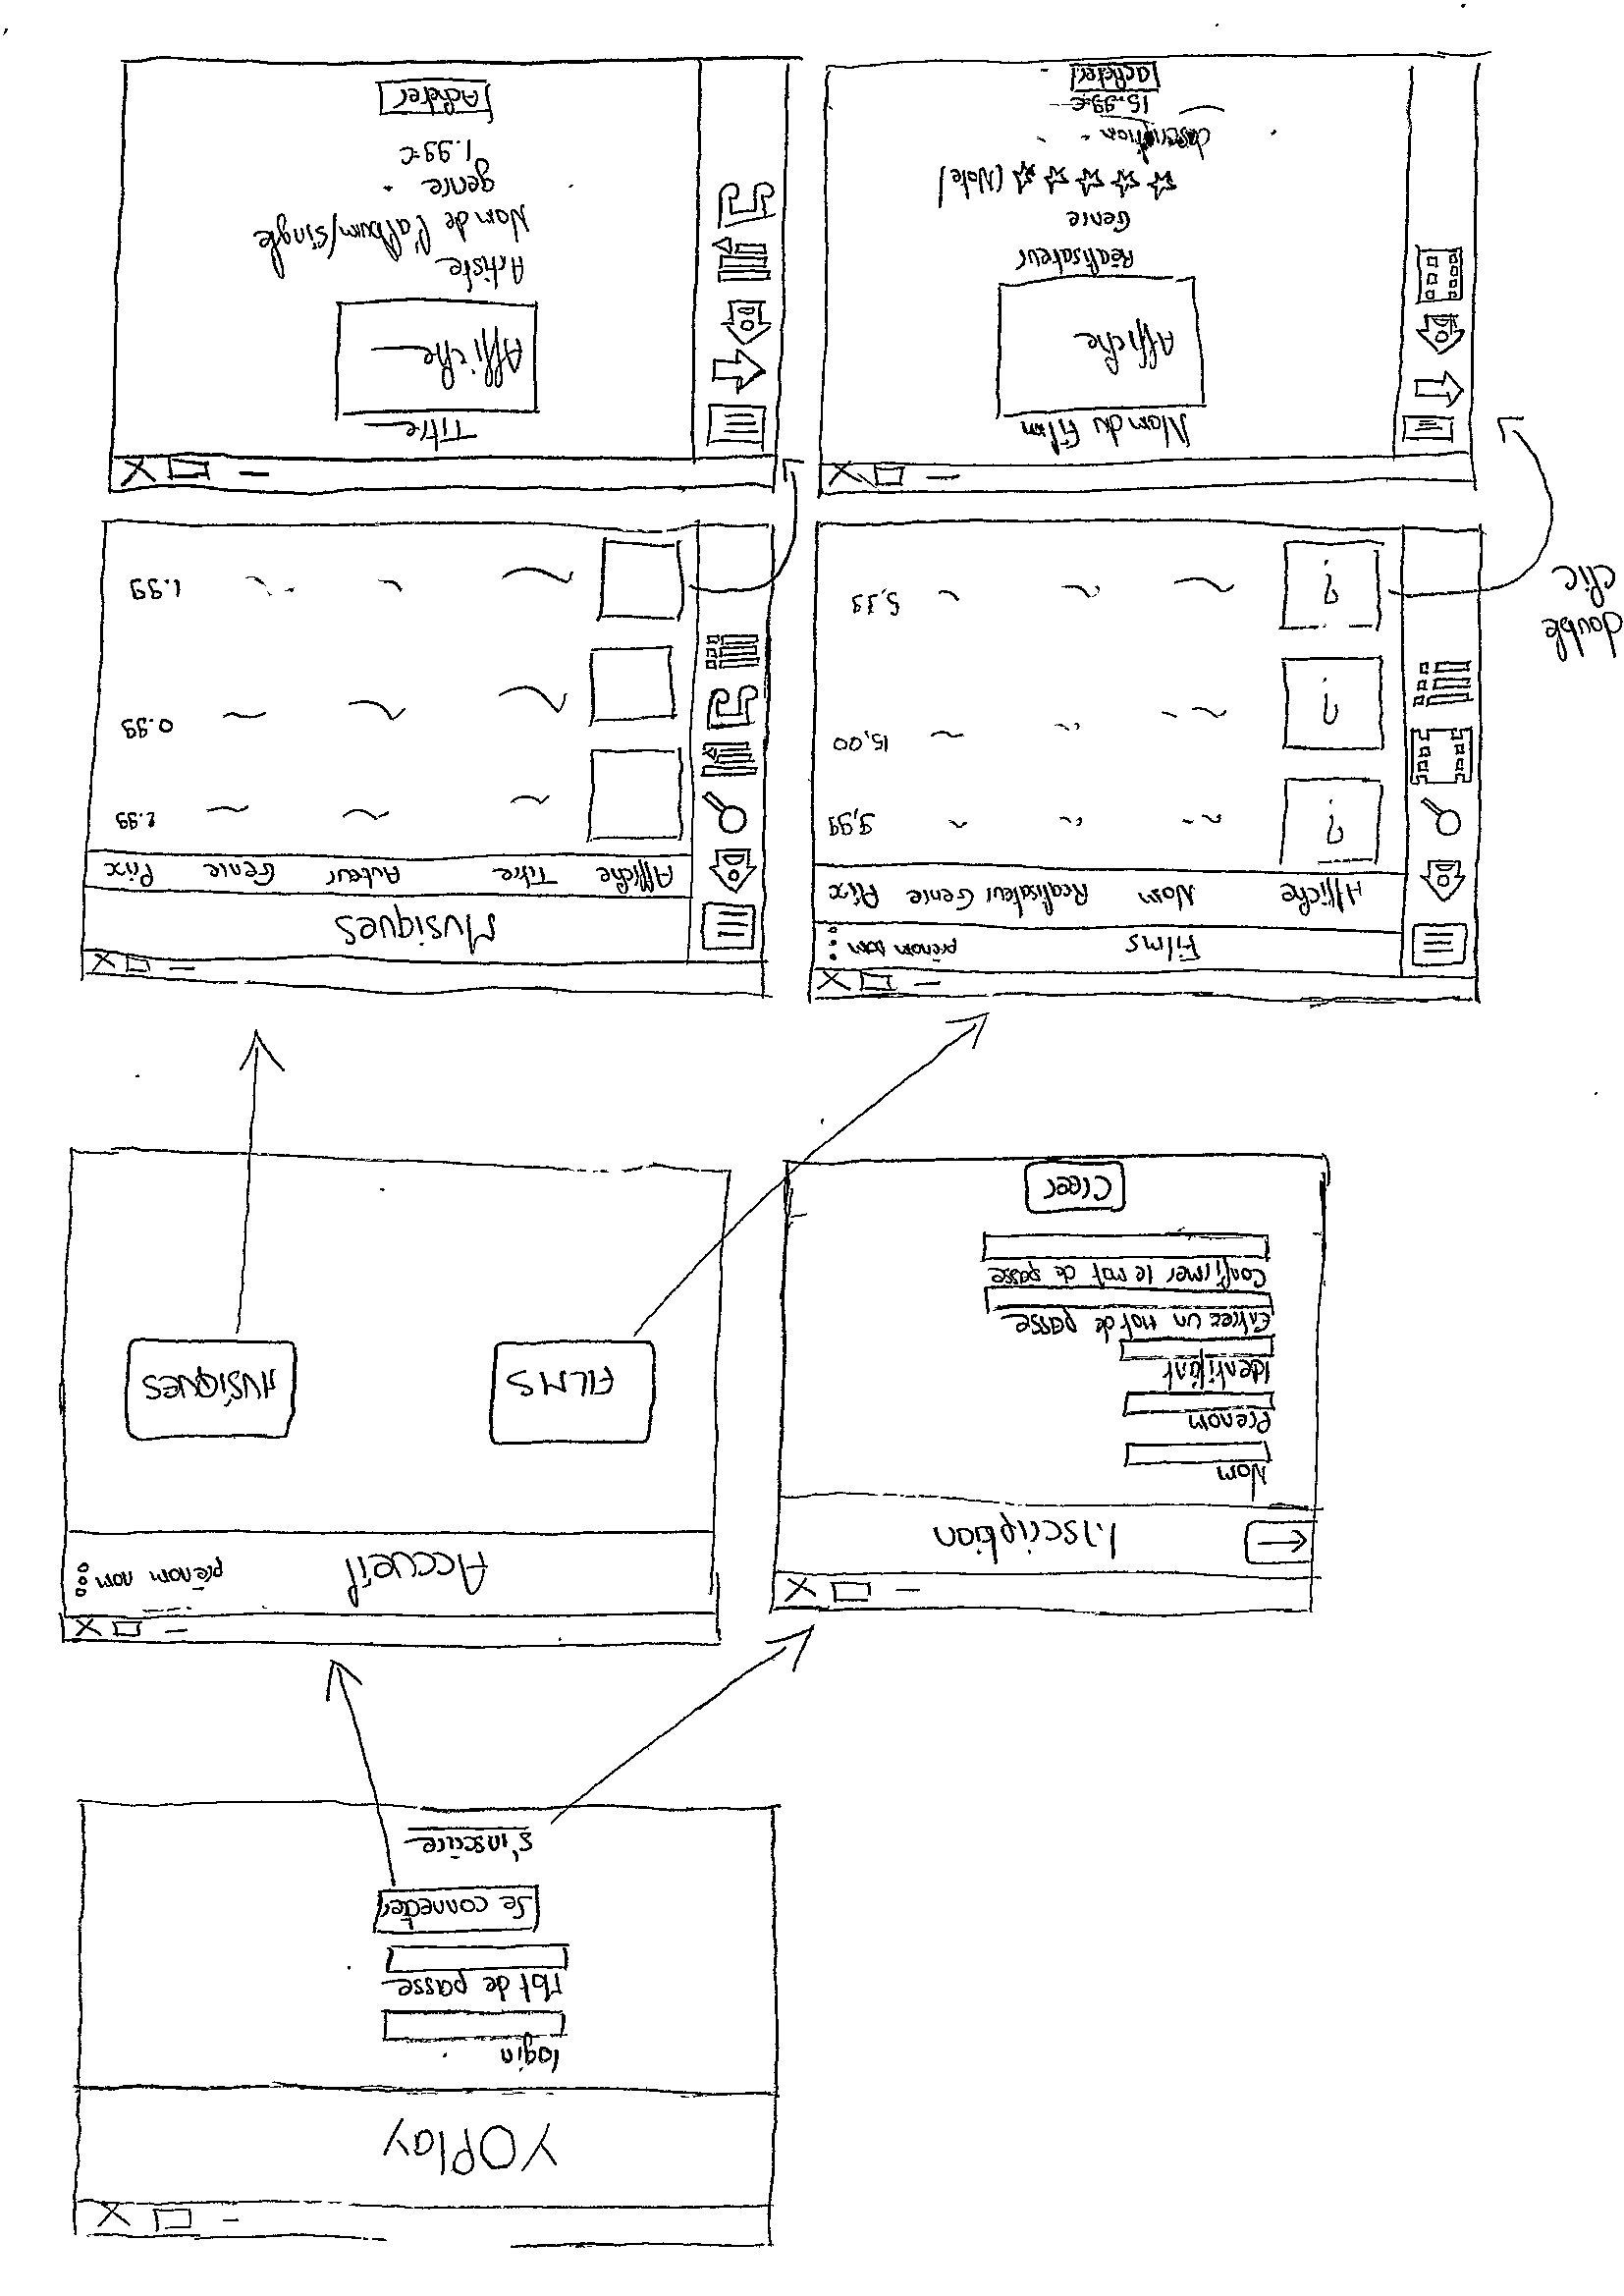 YOPlay
login
Mot de passe
Se connecter
s'inscrire
Inscription
Nom
Prenom
Identifiant
Entrez un mot de passe
Confirmer le mot de passe
Creer
Accueil
prénom nom
FILMS
MUSIQUES
Films
prénom nom
Affiche Nom Realisateur Genre Prix
? 9,99
? 15,00
? 5,99
double
clic
Musiques
Affiche Titre Auteur Genre Prix
0.99
1.99
Nom du Film
Affiche
Réalisateur
Genre
(Note)
description
15.99€
acheter
Titre
Affiche
Artiste
Nom de l'album/single
genre
1.99€
Acheter